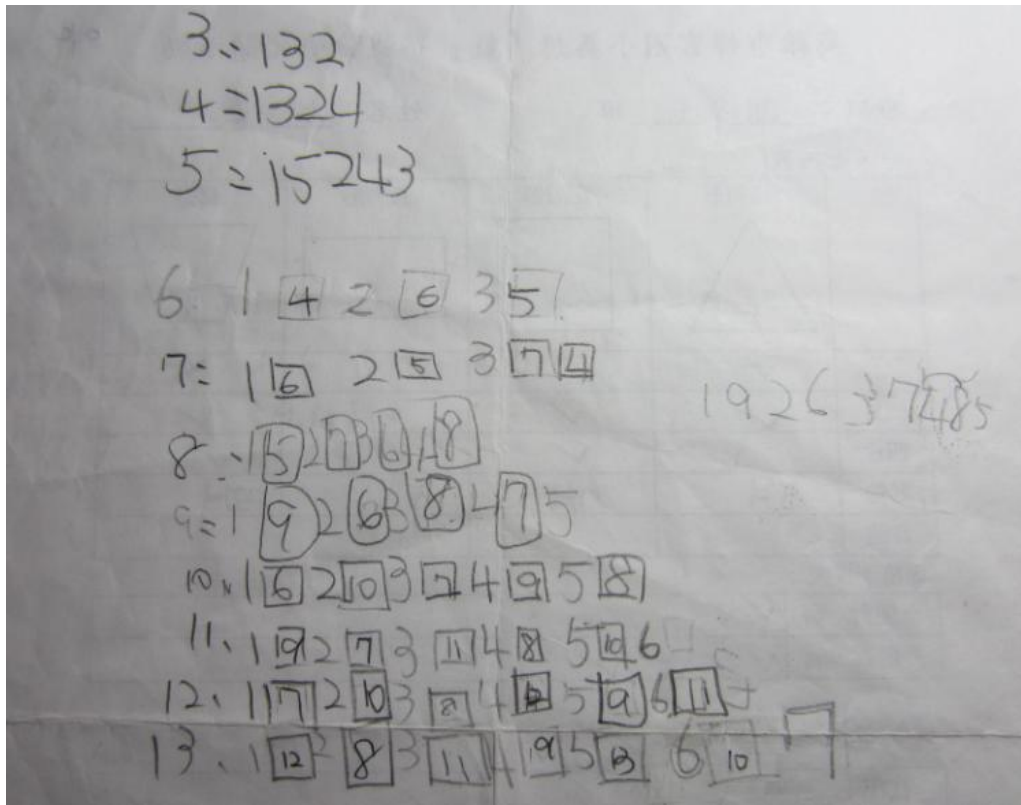 3、132
4=1324
5=15243
6. 1 4 2 6 3 5
7= 1 6 2 5 3 7 4
1926 37485
8、1 5 2 7 3 6 4 8
9=1 9 2 6 3 8 4 7 5
10、1 6 2 10 3 7 4 9 5 8
11、1 9 2 7 3 11 4 8 5 10 6
12、1 7 2 10 3 8 4 12 5 9 6 11
13、1 12 2 8 3 11 4 9 5 13 6 10 7